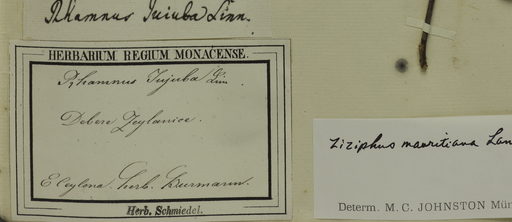 Rhamnus Jujuba Linn.
HERBARIUM REGIUM MONACENSE.
Rhamnus Jujuba Lin.
Debere Zeylanice.
E Ceylona. herb. Burmann.
Herb. Schmiedel.
Ziziphus mauritiana Lam
Determ. M. C. JOHNSTON Mün